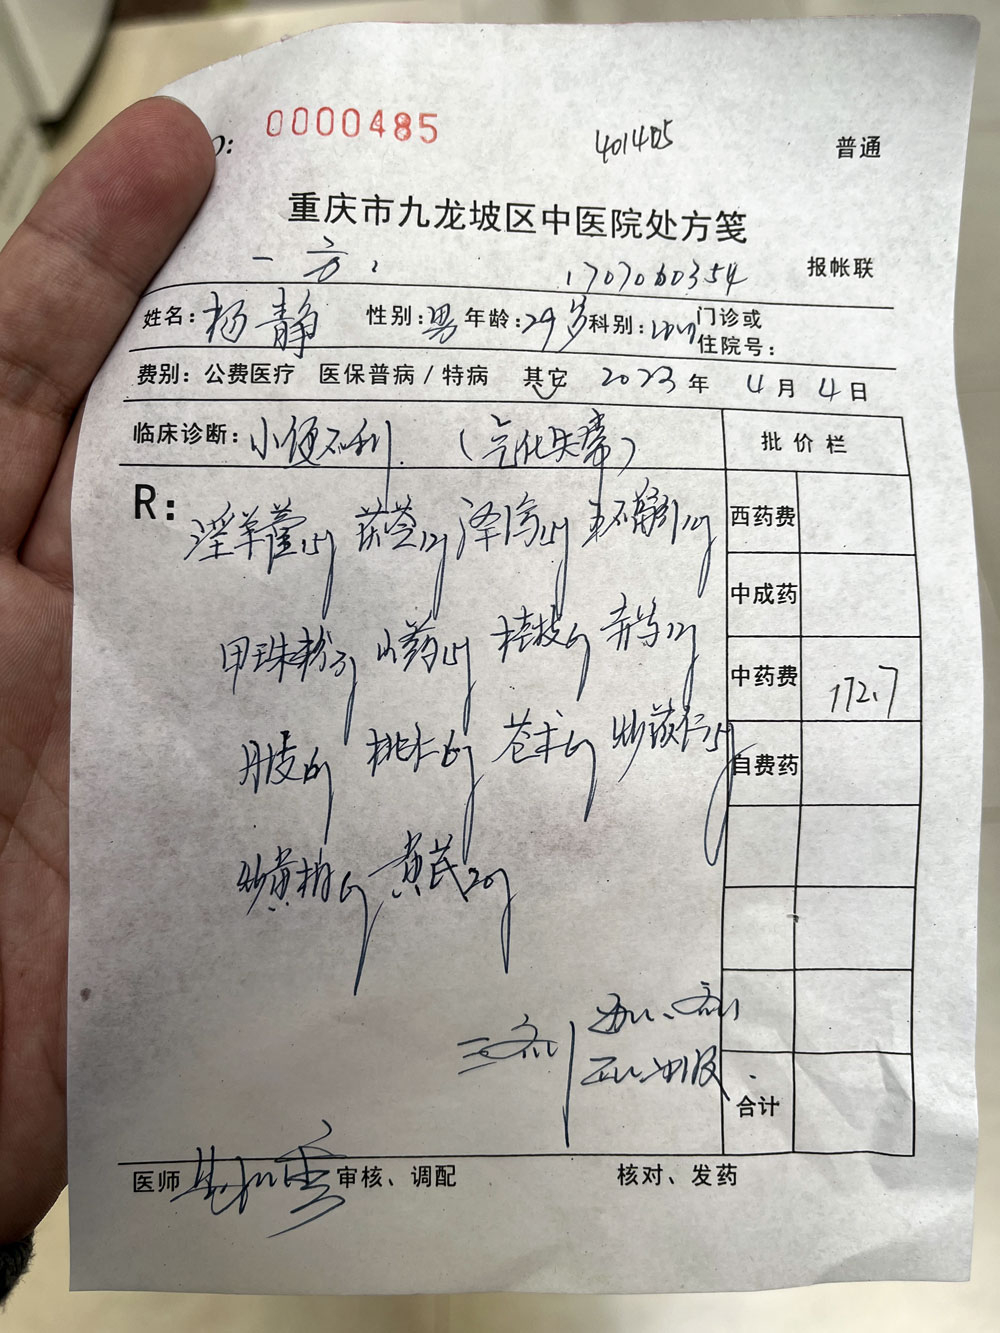 0000485
401405
普通
重庆市九龙坡区中医院处方笺
一方
1707060354
报帐联
姓名：杨静 性别：男 年龄：29岁 科别： 门诊或住院号：
费别：公费医疗 医保普病/特病 其它 2023年4月4日
临床诊断：小便不利（气化失常）
批价栏
R：
淫羊藿15g 茯苓12g 泽泻15g 王不留行12g
甲珠粉3g 山药15g 桂枝6g 赤芍12g
丹皮6g 桃仁6g 苍术6g 炒薏仁15g
炒黄柏6g 黄芪20g
西药费
中成药
中药费 172.7
自费药
三剂
合计
医师 审核、调配 核对、发药